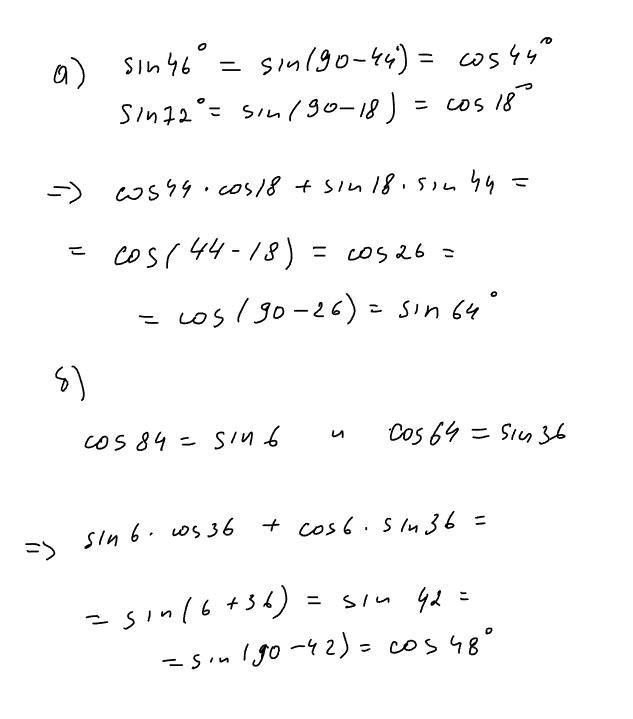 а) sin46° = sin(90-44) = cos44°
sin72° = sin(90-18) = cos18°
=> cos44·cos18 + sin18·sin44 =
= cos(44-18) = cos26 =
= cos(90-26) = sin64°
б)
cos84 = sin6 и cos64 = sin36
=> sin6·cos36 + cos6·sin36 =
= sin(6+36) = sin 42 =
= sin(90-42) = cos48°